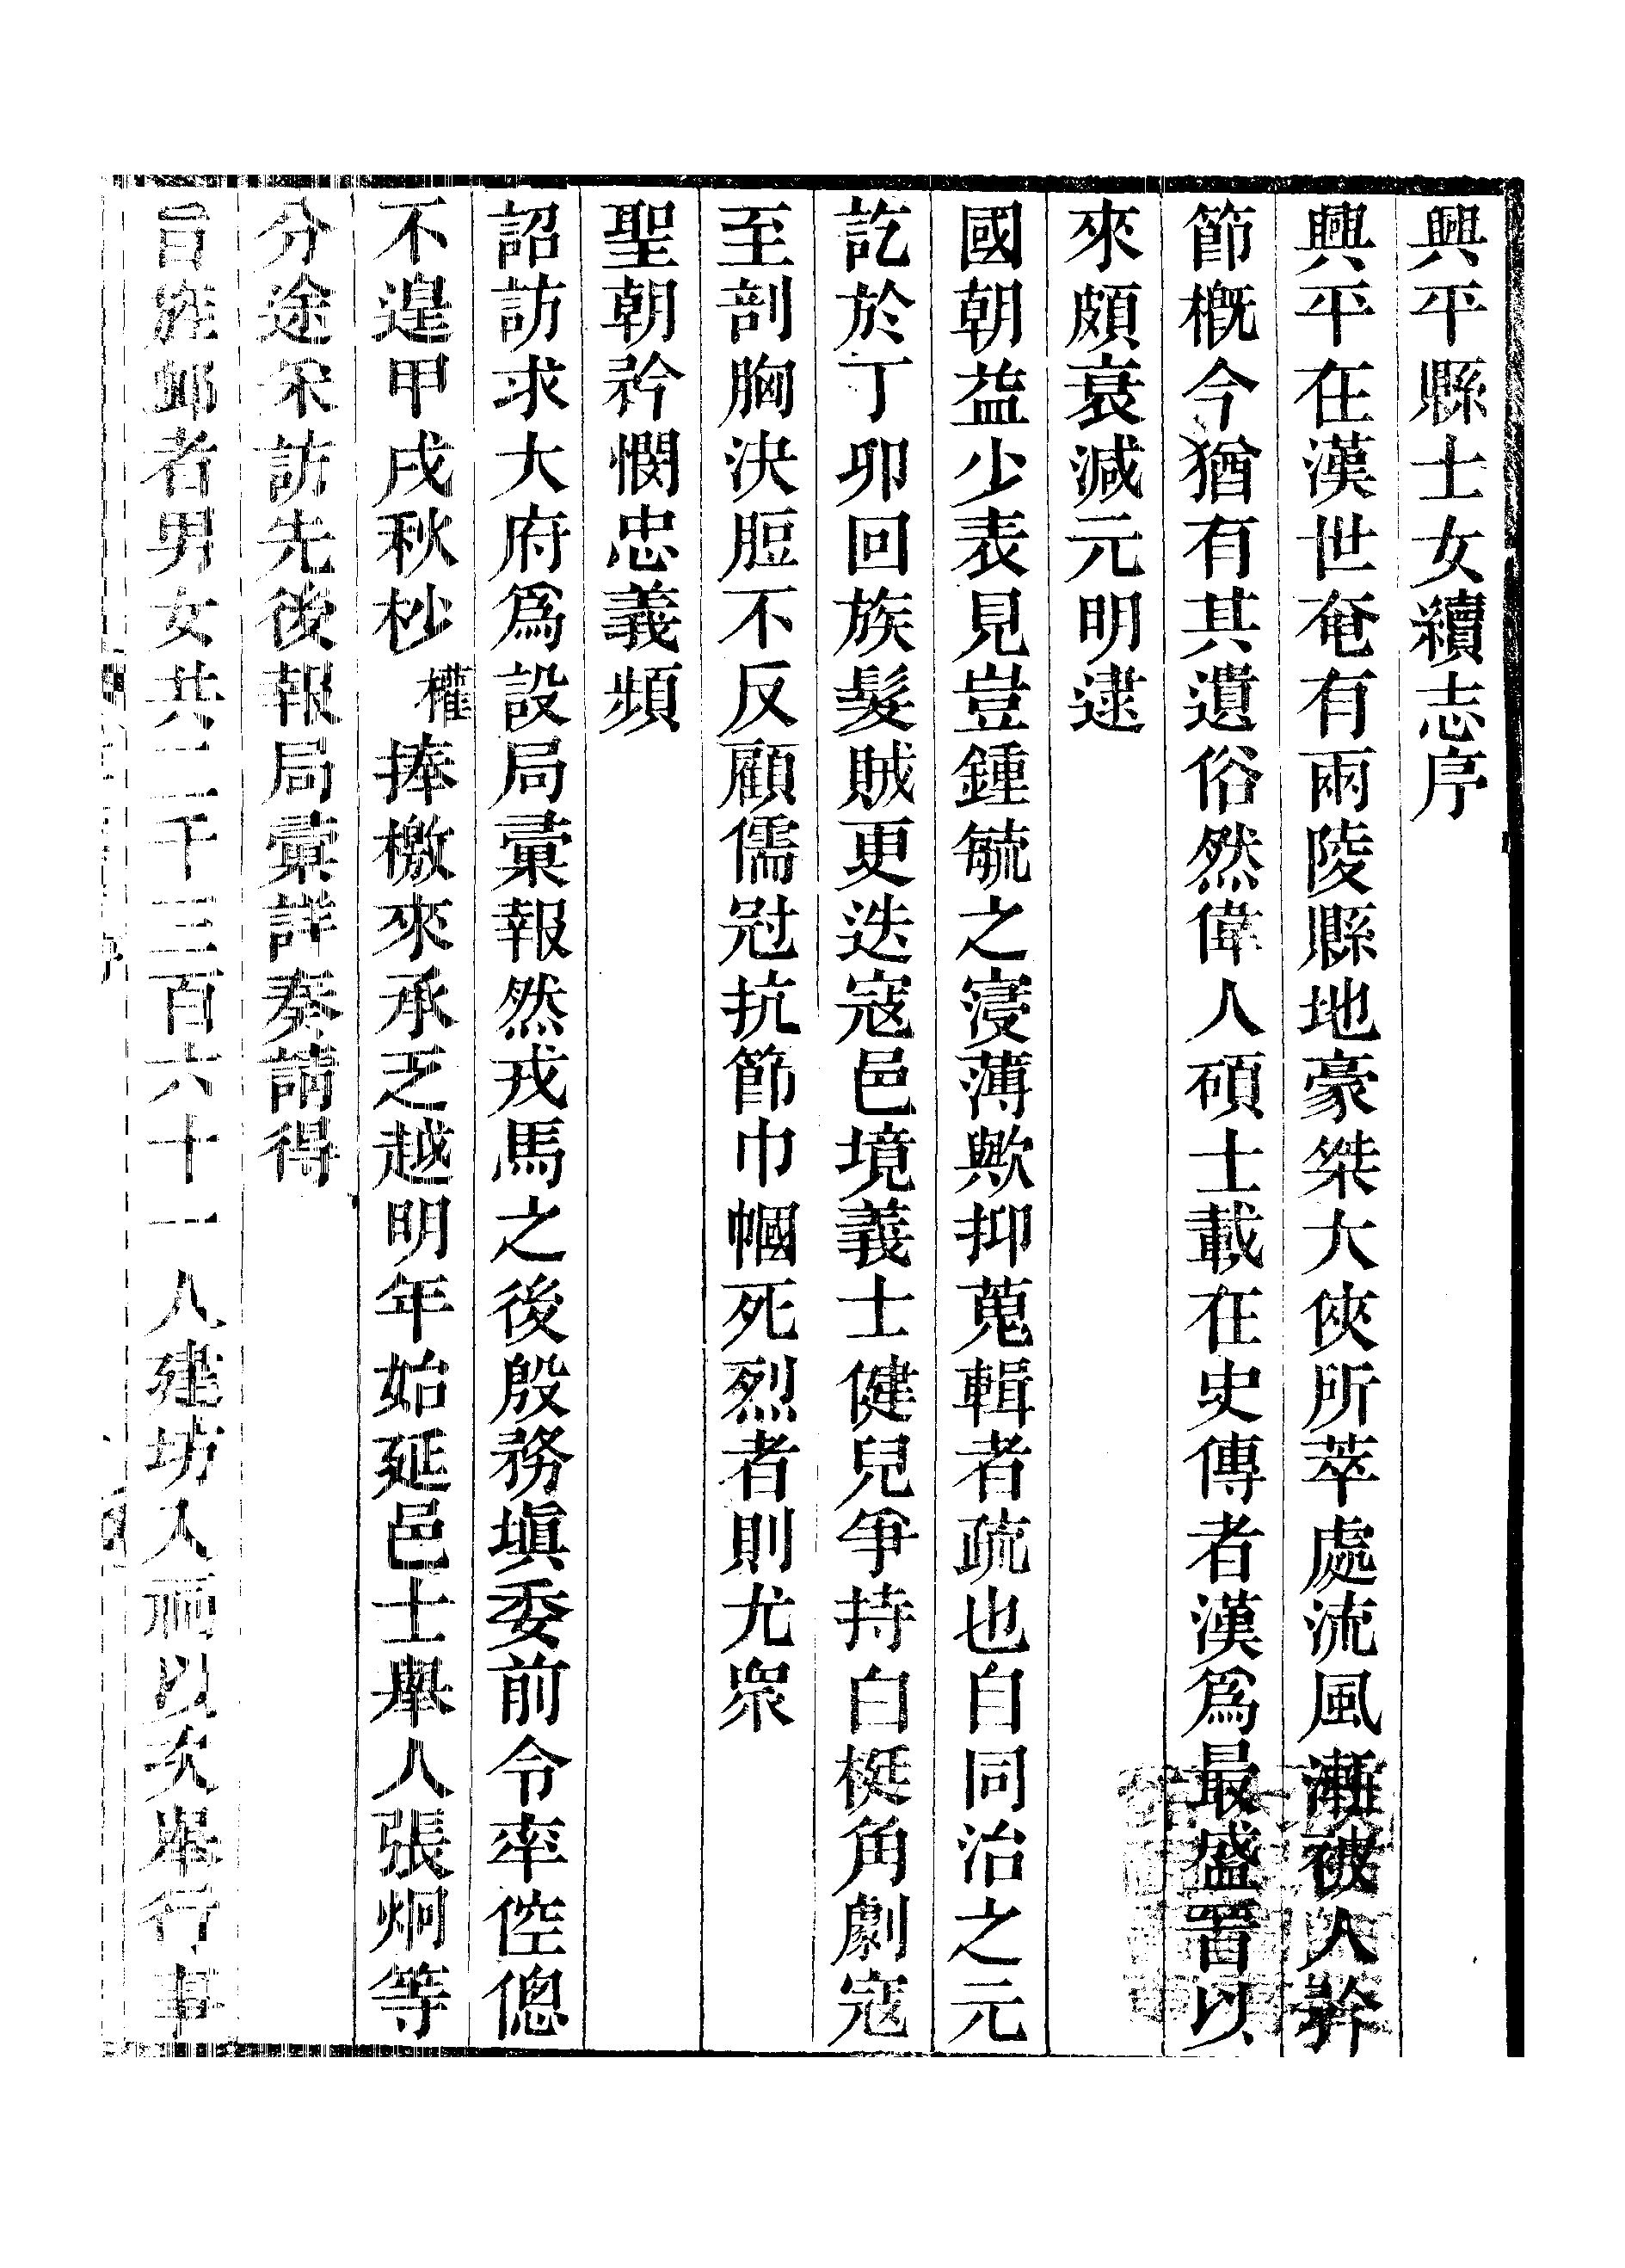 興平縣士女續志序
興平在漢世奄有兩陵縣地豪桀大俠所萃處流風漸被人矜
節概今猶有其遺俗然偉人碩士載在史傳者漢爲最盛晉以
來頗衰減元明逮
國朝益少表見豈鍾毓之寖薄歟抑蒐輯者疏也自同治之元
訖於丁卯回族髮賊更迭寇邑境義士健兒爭持白梃角劇寇
至剖胸決脰不反顧儒冠抗節巾幗死烈者則尤眾
聖朝矜憫忠義頻
詔訪求大府爲設局彙報然戎馬之後殷務塡委前令率倥傯
不遑甲戌秋杪權捧檄來承乏越明年始延邑士舉人張炯等
分途采訪先後報局彙詳奏請得
旨旌卹者男女共二千三百六十一人建坊入祠以次舉行事